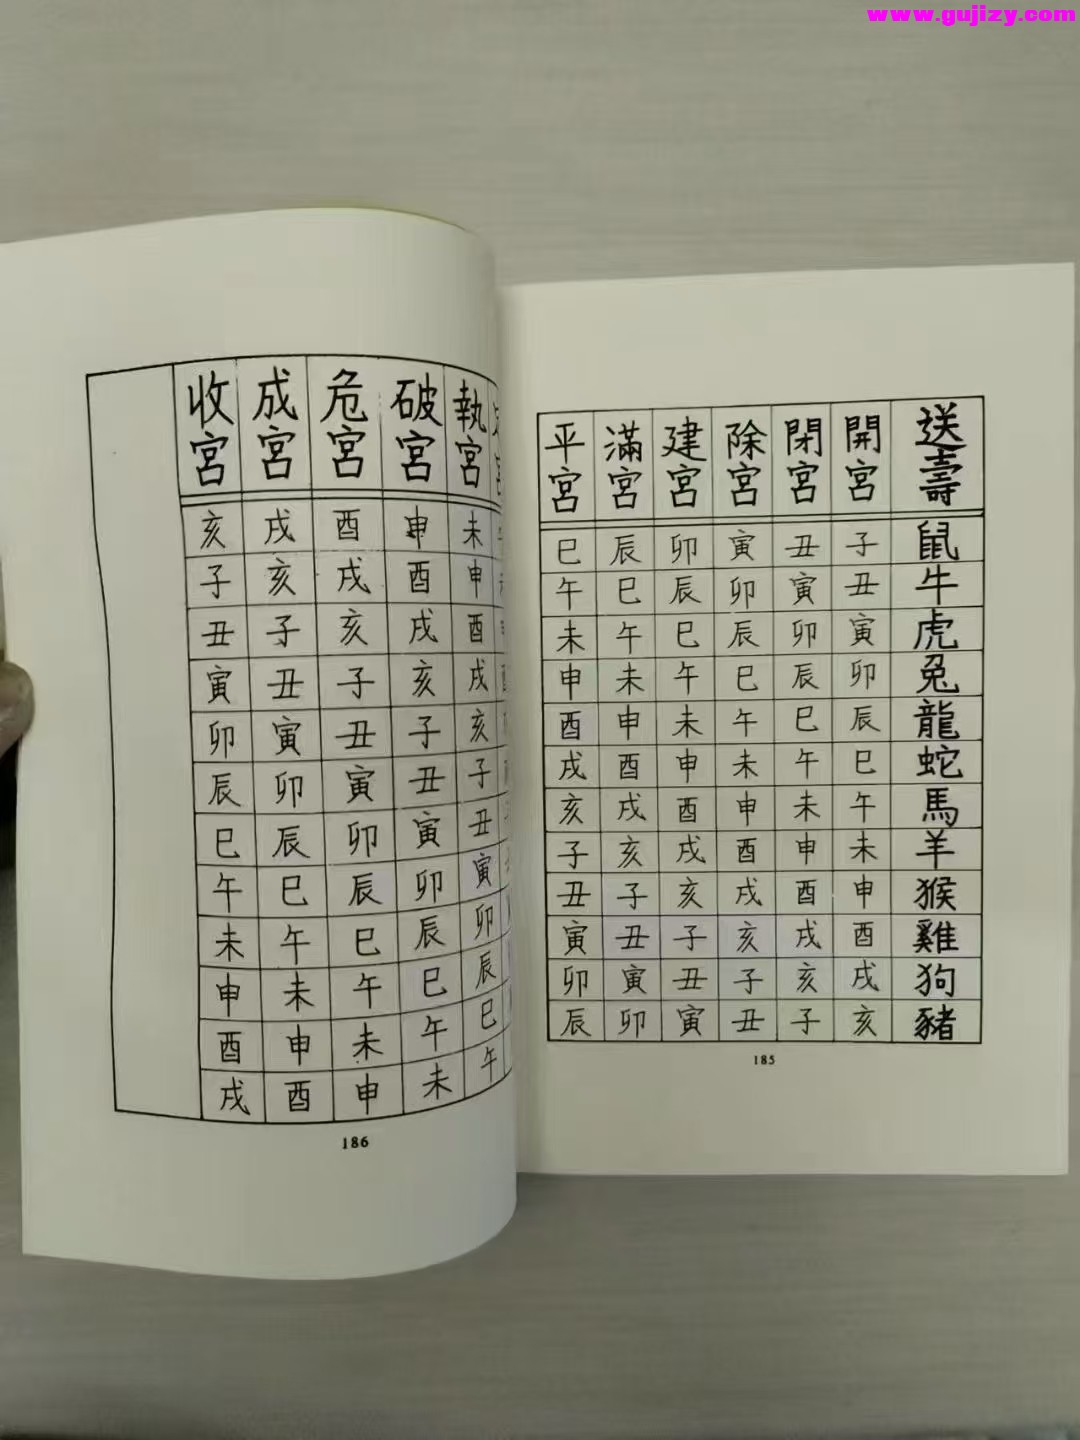 www.gujizy.com
送壽 鼠 牛 虎 兔 龍 蛇 馬 羊 猴 雞 狗 豬
開宮 子 丑 寅 卯 辰 巳 午 未 申 酉 戌 亥
閉宮 丑 寅 卯 辰 巳 午 未 申 酉 戌 亥 子
除宮 寅 卯 辰 巳 午 未 申 酉 戌 亥 子 丑
建宮 卯 辰 巳 午 未 申 酉 戌 亥 子 丑 寅
滿宮 辰 巳 午 未 申 酉 戌 亥 子 丑 寅 卯
平宮 巳 午 未 申 酉 戌 亥 子 丑 寅 卯 辰
185
執宮 未 申 酉 戌 亥 子 丑 寅 卯 辰 巳 午
破宮 申 酉 戌 亥 子 丑 寅 卯 辰 巳 午 未
危宮 酉 戌 亥 子 丑 寅 卯 辰 巳 午 未 申
成宮 戌 亥 子 丑 寅 卯 辰 巳 午 未 申 酉
收宮 亥 子 丑 寅 卯 辰 巳 午 未 申 酉 戌
186